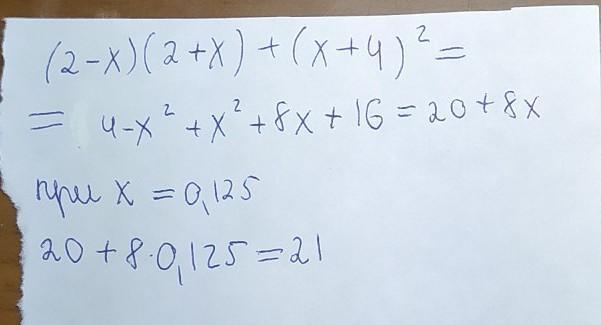 (2-x)(2+x)+(x+4)²=
= 4-x²+x²+8x+16=20+8x
при x=0,125
20+8·0,125=21